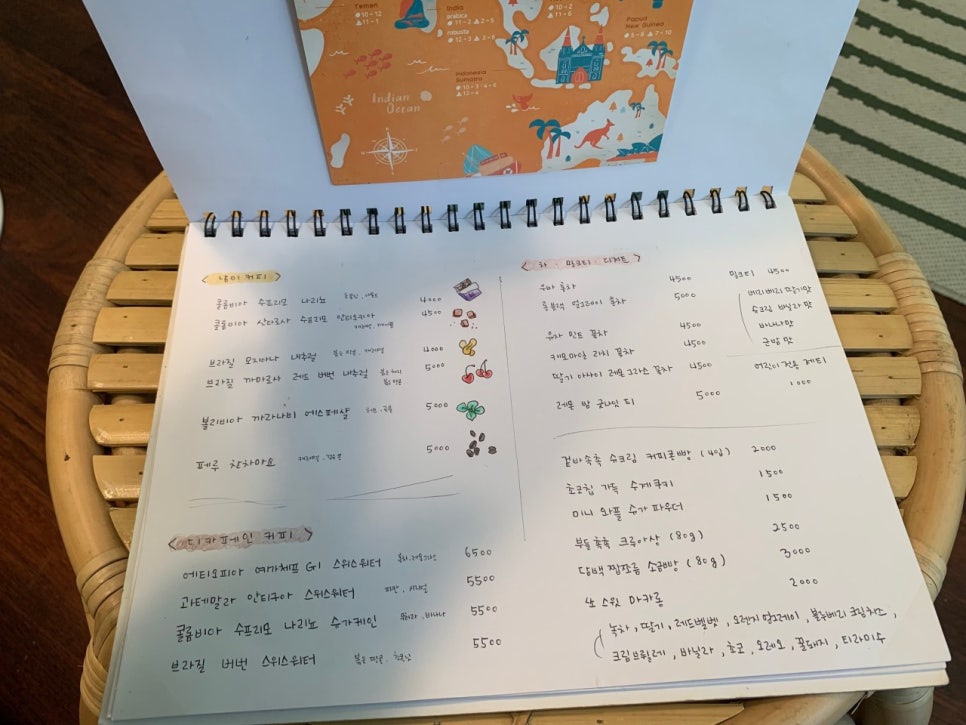 Yemen
India
arabica
robusta
Indonesia
Sumatra
Papua
New Guinea
Indian
Ocean
< 남미 커피 >
콜롬비아 수프리모 나리뇨 4000
콜롬비아 산타로사 수프리모 안티오키아 4500
브라질 모지아나 내추럴 4000
브라질 까마로사 레드 버번 내추럴 5000
볼리비아 까라나비 에스페샬 5000
페루 찬차마요 5000
< 디카페인 커피 >
에티오피아 예가체프 G1 스위스워터 6500
과테말라 안티구아 스위스워터 5500
콜롬비아 수프리모 나리뇨 슈가케인 5500
브라질 버번 스위스워터 5500
< 차 · 밀크티 · 디저트 >
우바 홍차 4500
얼그레이 홍차 5000
유자 민트 홍차 4500
캐모마일 리치 홍차 4500
딸기 아사이 레몬그라스 홍차 4500
레몬 밤 굿나잇 티 5000
밀크티 4500
베리베리 딸기맛
슈크림 바닐라 맛
바나나맛
군밤 맛
어린이 전용 제티
1000
겉바속촉 슈크림 커피콩빵 (4입) 2000
초코칩 가득 수제쿠키 1500
미니 와플 슈가 파우더 1500
부들촉촉 크루아상 (80g) 2500
담백 짭쪼름 소금빵 (80g) 3000
스윗 마카롱 2000
녹차, 딸기, 레드벨벳, 오렌지 얼그레이, 블루베리 크림치즈,
크림브륄레, 바닐라, 초코, 오레오, 꿀돼지, 티라미수